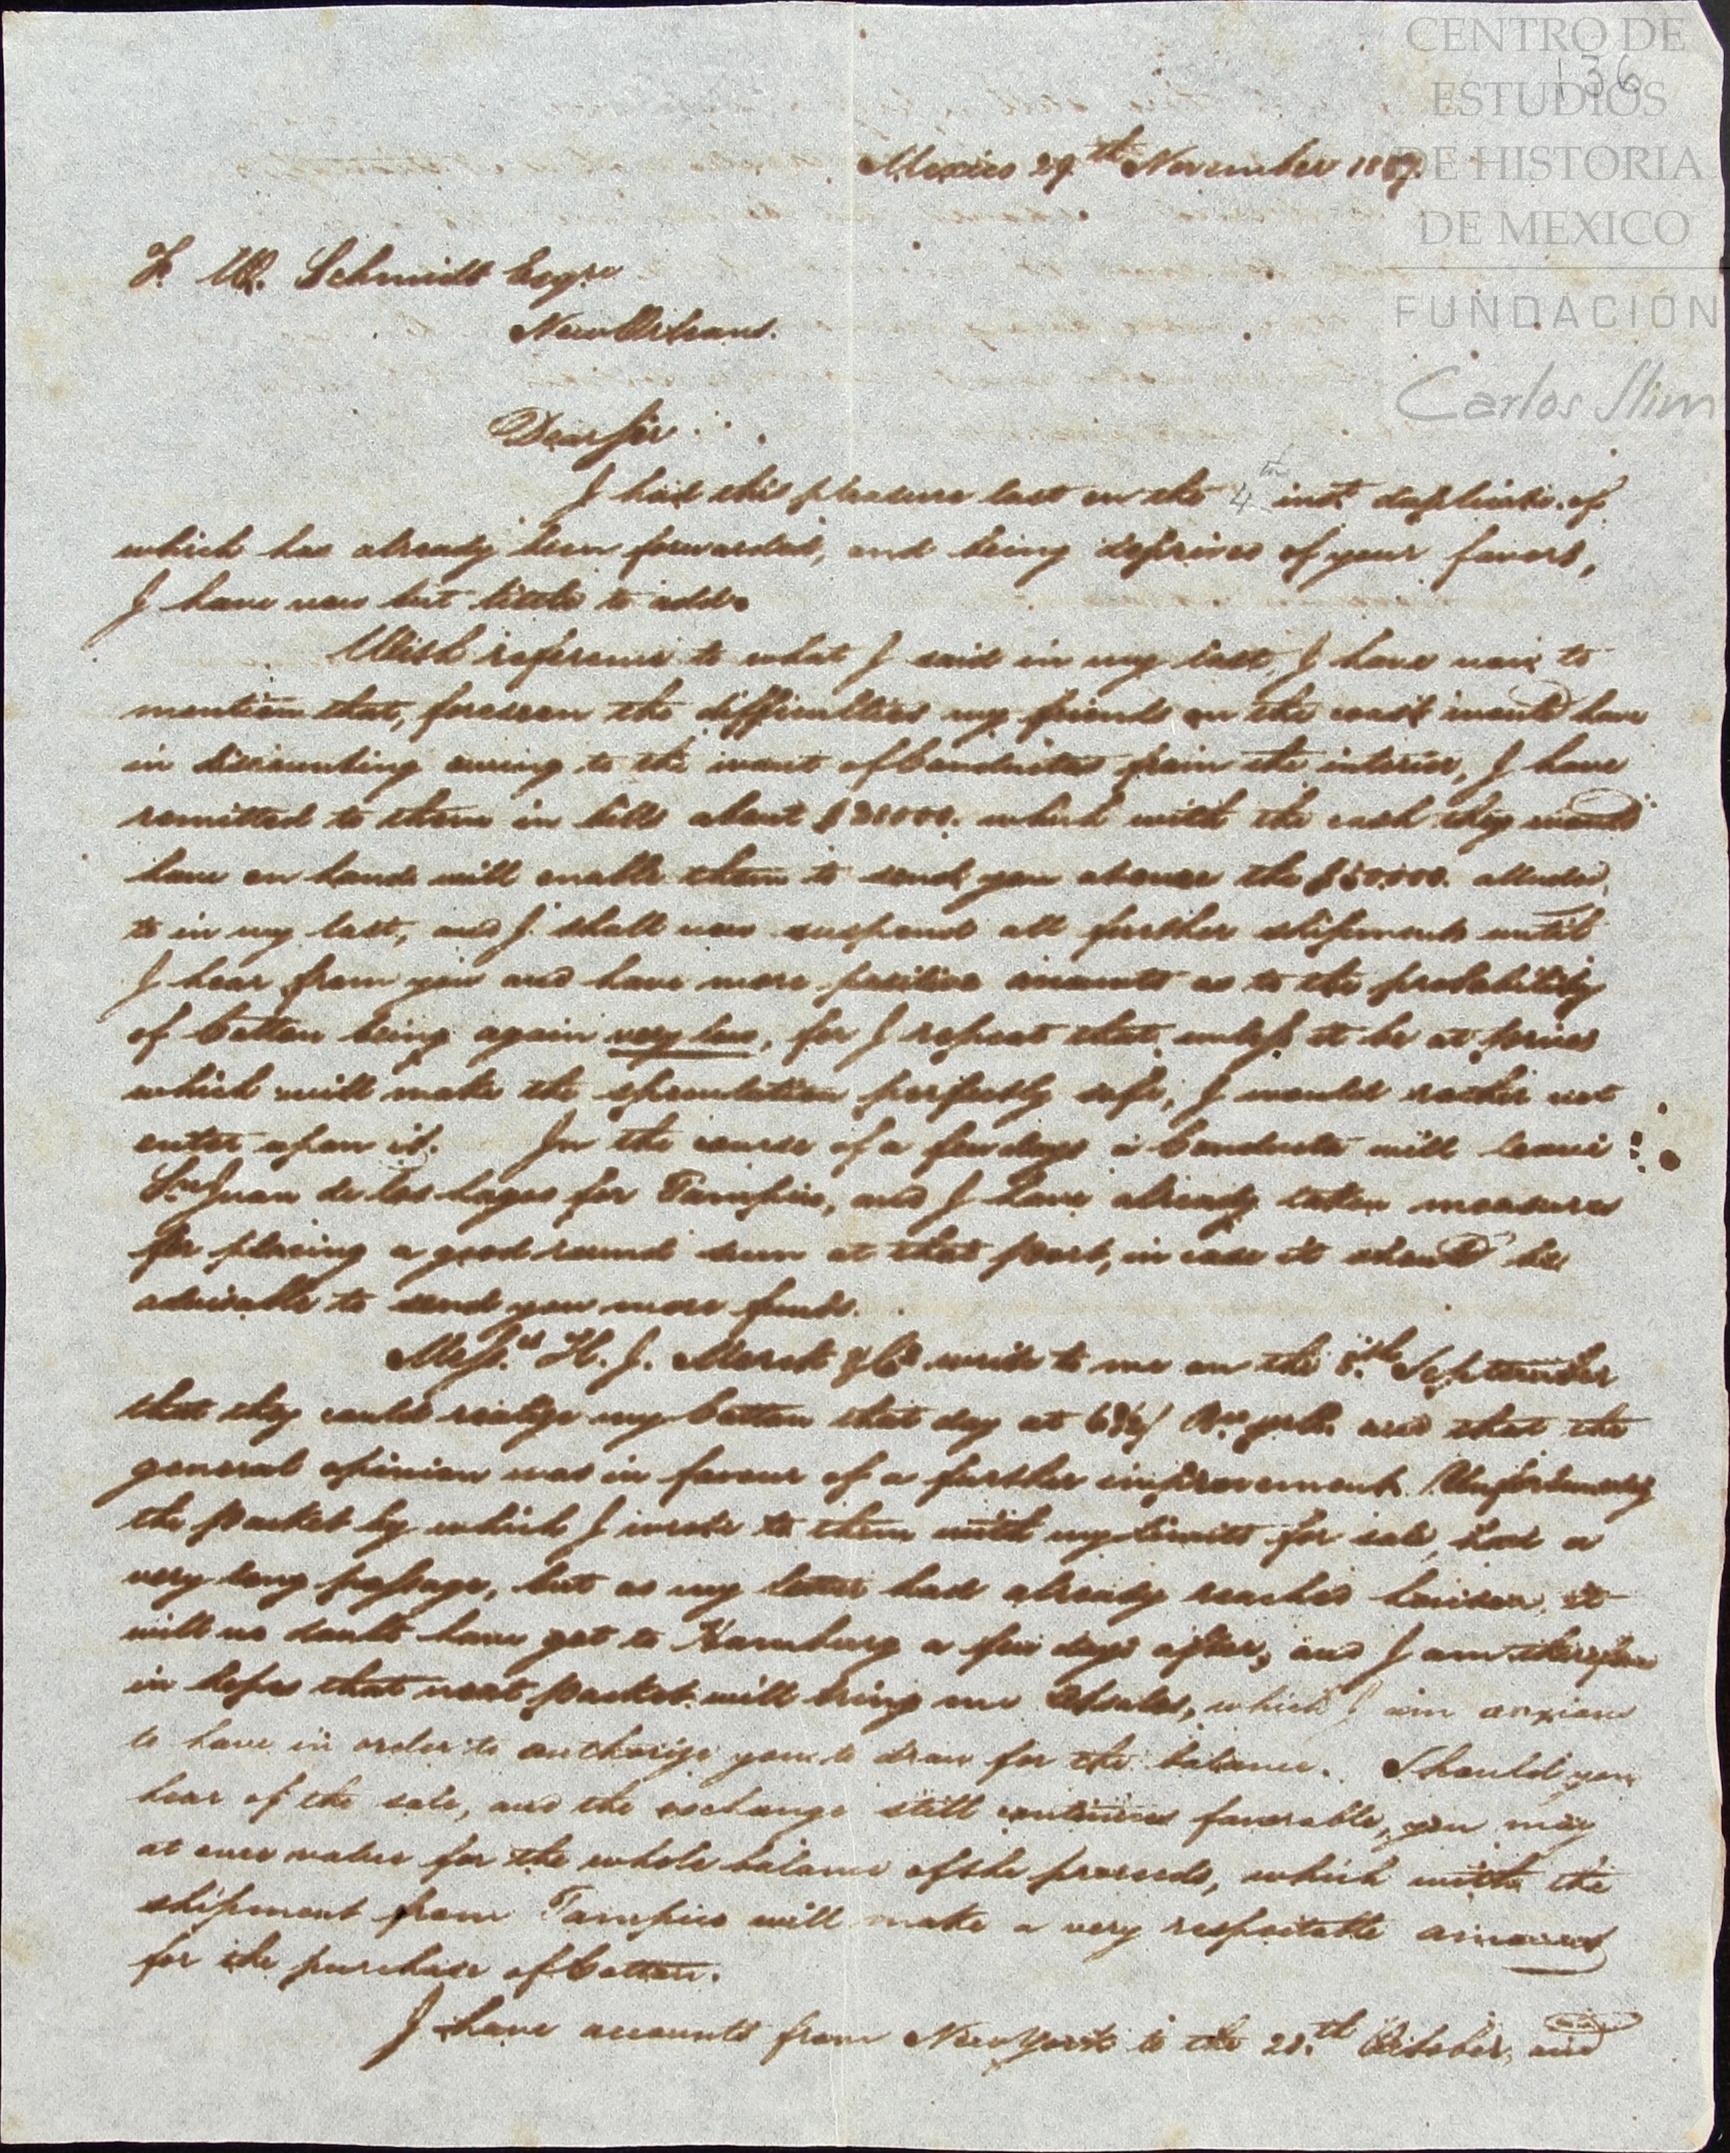 CENTRO DE
ESTUDIOS
DE HISTORIA
DE MEXICO
FUNDACIÓN
Carlos Slim
136
Mexico 29th November 1837.
F. W. Schmidt Esqre
New Orleans.
Dear Sir
I had this pleasure last on the 4th inst duplicate of
which has already been forwarded, and being deprived of your favors,
I have now but little to add.
With reference to what I said in my last, I have now to
mention that, foreseen the difficulties my friends on the coast would have
in discounting owing to the want of Conductas from the interior, I have
remitted to them in bills about $20000. which with the cash they would
have on hand will enable them to send you the $50.000. alluded
to in my last, and I shall now suspend all further shipments until
I hear from you and have more positive accounts as to the probability
of Cotton being again very low, for I repeat that unless it be at prices
which will make the speculation perfectly safe, I would rather not
enter upon it. In the course of a few days a Conducta will leave
Sn Juan de los Lagos for Tampico, and I have already taken measures
for placing a good round sum at that port, in case it should be
advisable to send you more funds.
Messrs H. J. Merck & Co write to me on the 8th September
that they could realize my Cotton that day at and that the
general opinion was in favour of a further improvement. Unfortunately
the packet by which I wrote to them with my limits for sale, had a
very long passage, but as my letter had already reached London it
will no doubt have got to Hamburg a few days after, and I am therefore
in hopes that next packet will bring me which I am anxious
to have in order to authorize you to draw for the balance. Should you
hear of the sale, and the exchange still continues favorable, you may
at once value for the whole balance of the proceeds, which with the
shipment from Tampico will make a very respectable amount
for the purchase of Cotton.
I have accounts from New York to the 20th October, and